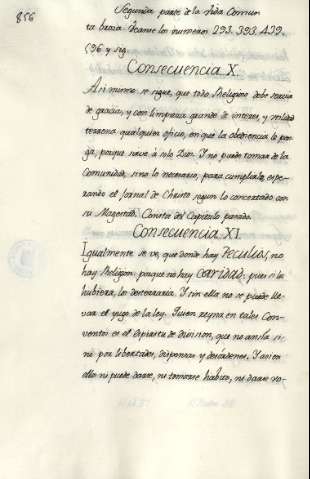 856
Segunda parte de la Vida Comun
se haga. Veanse los numeros 293. 393. 439.
596 y sig.
Consecuencia X.
Asi mismo se sigue, que todo Religioso debe servir
de gracia, y con limpieza grande de interes, y utilidad
terrena qualquier oficio, en que la obediencia lo pon-
ga, porque sirve à solo Dios. Y no puede tomar de la
Comunidad, sino lo necesario, para cumplirle, espe-
rando el jornal de Christo segun lo concertado con
su Magestad. Consta del Capitulo pasado.
Consecuencia XI.
Igualmente se ve, que donde hay Peculios, no
hay Religion: porque no hay caridad; pues si la
hubiera, los desterraria. Y sin ella no se puede lle-
var el yugo de la ley. Quien reyna en tales Con-
ventos es el Espiritu de division, que no anida si-
no por libertades, dispensas y desordenes. Y asi en
ellos ni puede darse, ni tomarse habito, ni darse vo-